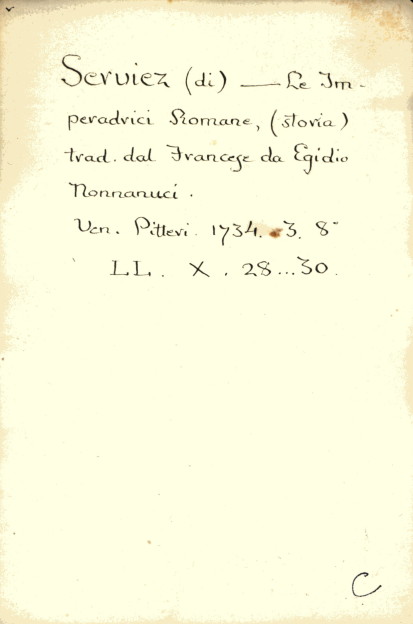 Serviez (di) — Le Im-
peradrici Romane, (storia)
trad. dal Francese da Egidio
Nonnanuci.
Ven. Pitteri. 1734. 3. 8°
LL. X. 28...30.
C